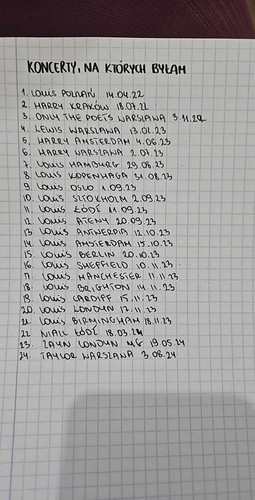 KONCERTY, NA KTÓRYCH BYŁAM
1. LOUIS POZNAŃ 14.04.22
2. HARRY KRAKÓW 18.07.22
3. ONLY THE POETS WARSZAWA 3.11.22
4. LEWIS WARSZAWA 13.02.23
5. HARRY AMSTERDAM 4.06.23
6. HARRY WARSZAWA 2.07.23
7. LOUIS HAMBURG 29.08.23
8. LOUIS KOPENHAGA 31.08.23
9. LOUIS OSLO 1.09.23
10. LOUIS SZTOKHOLM 2.09.23
11. LOUIS ŁÓDŹ 11.09.23
12. LOUIS ATENY 20.09.23
13. LOUIS ANTWERPIA 12.10.23
14. LOUIS AMSTERDAM 15.10.23
15. LOUIS BERLIN 20.10.23
16. LOUIS SHEFFIELD 10.11.23
17. LOUIS MANCHESTER 11.11.23
18. LOUIS BRIGHTON 14.11.23
19. LOUIS CARDIFF 15.11.23
20. LOUIS LONDYN 17.11.23
21. LOUIS BIRMINGHAM 18.11.23
22. NIALL ŁÓDŹ 18.03.24
23. ZAYN LONDYN MG 19.05.24
24. TAYLOR WARSZAWA 3.08.24